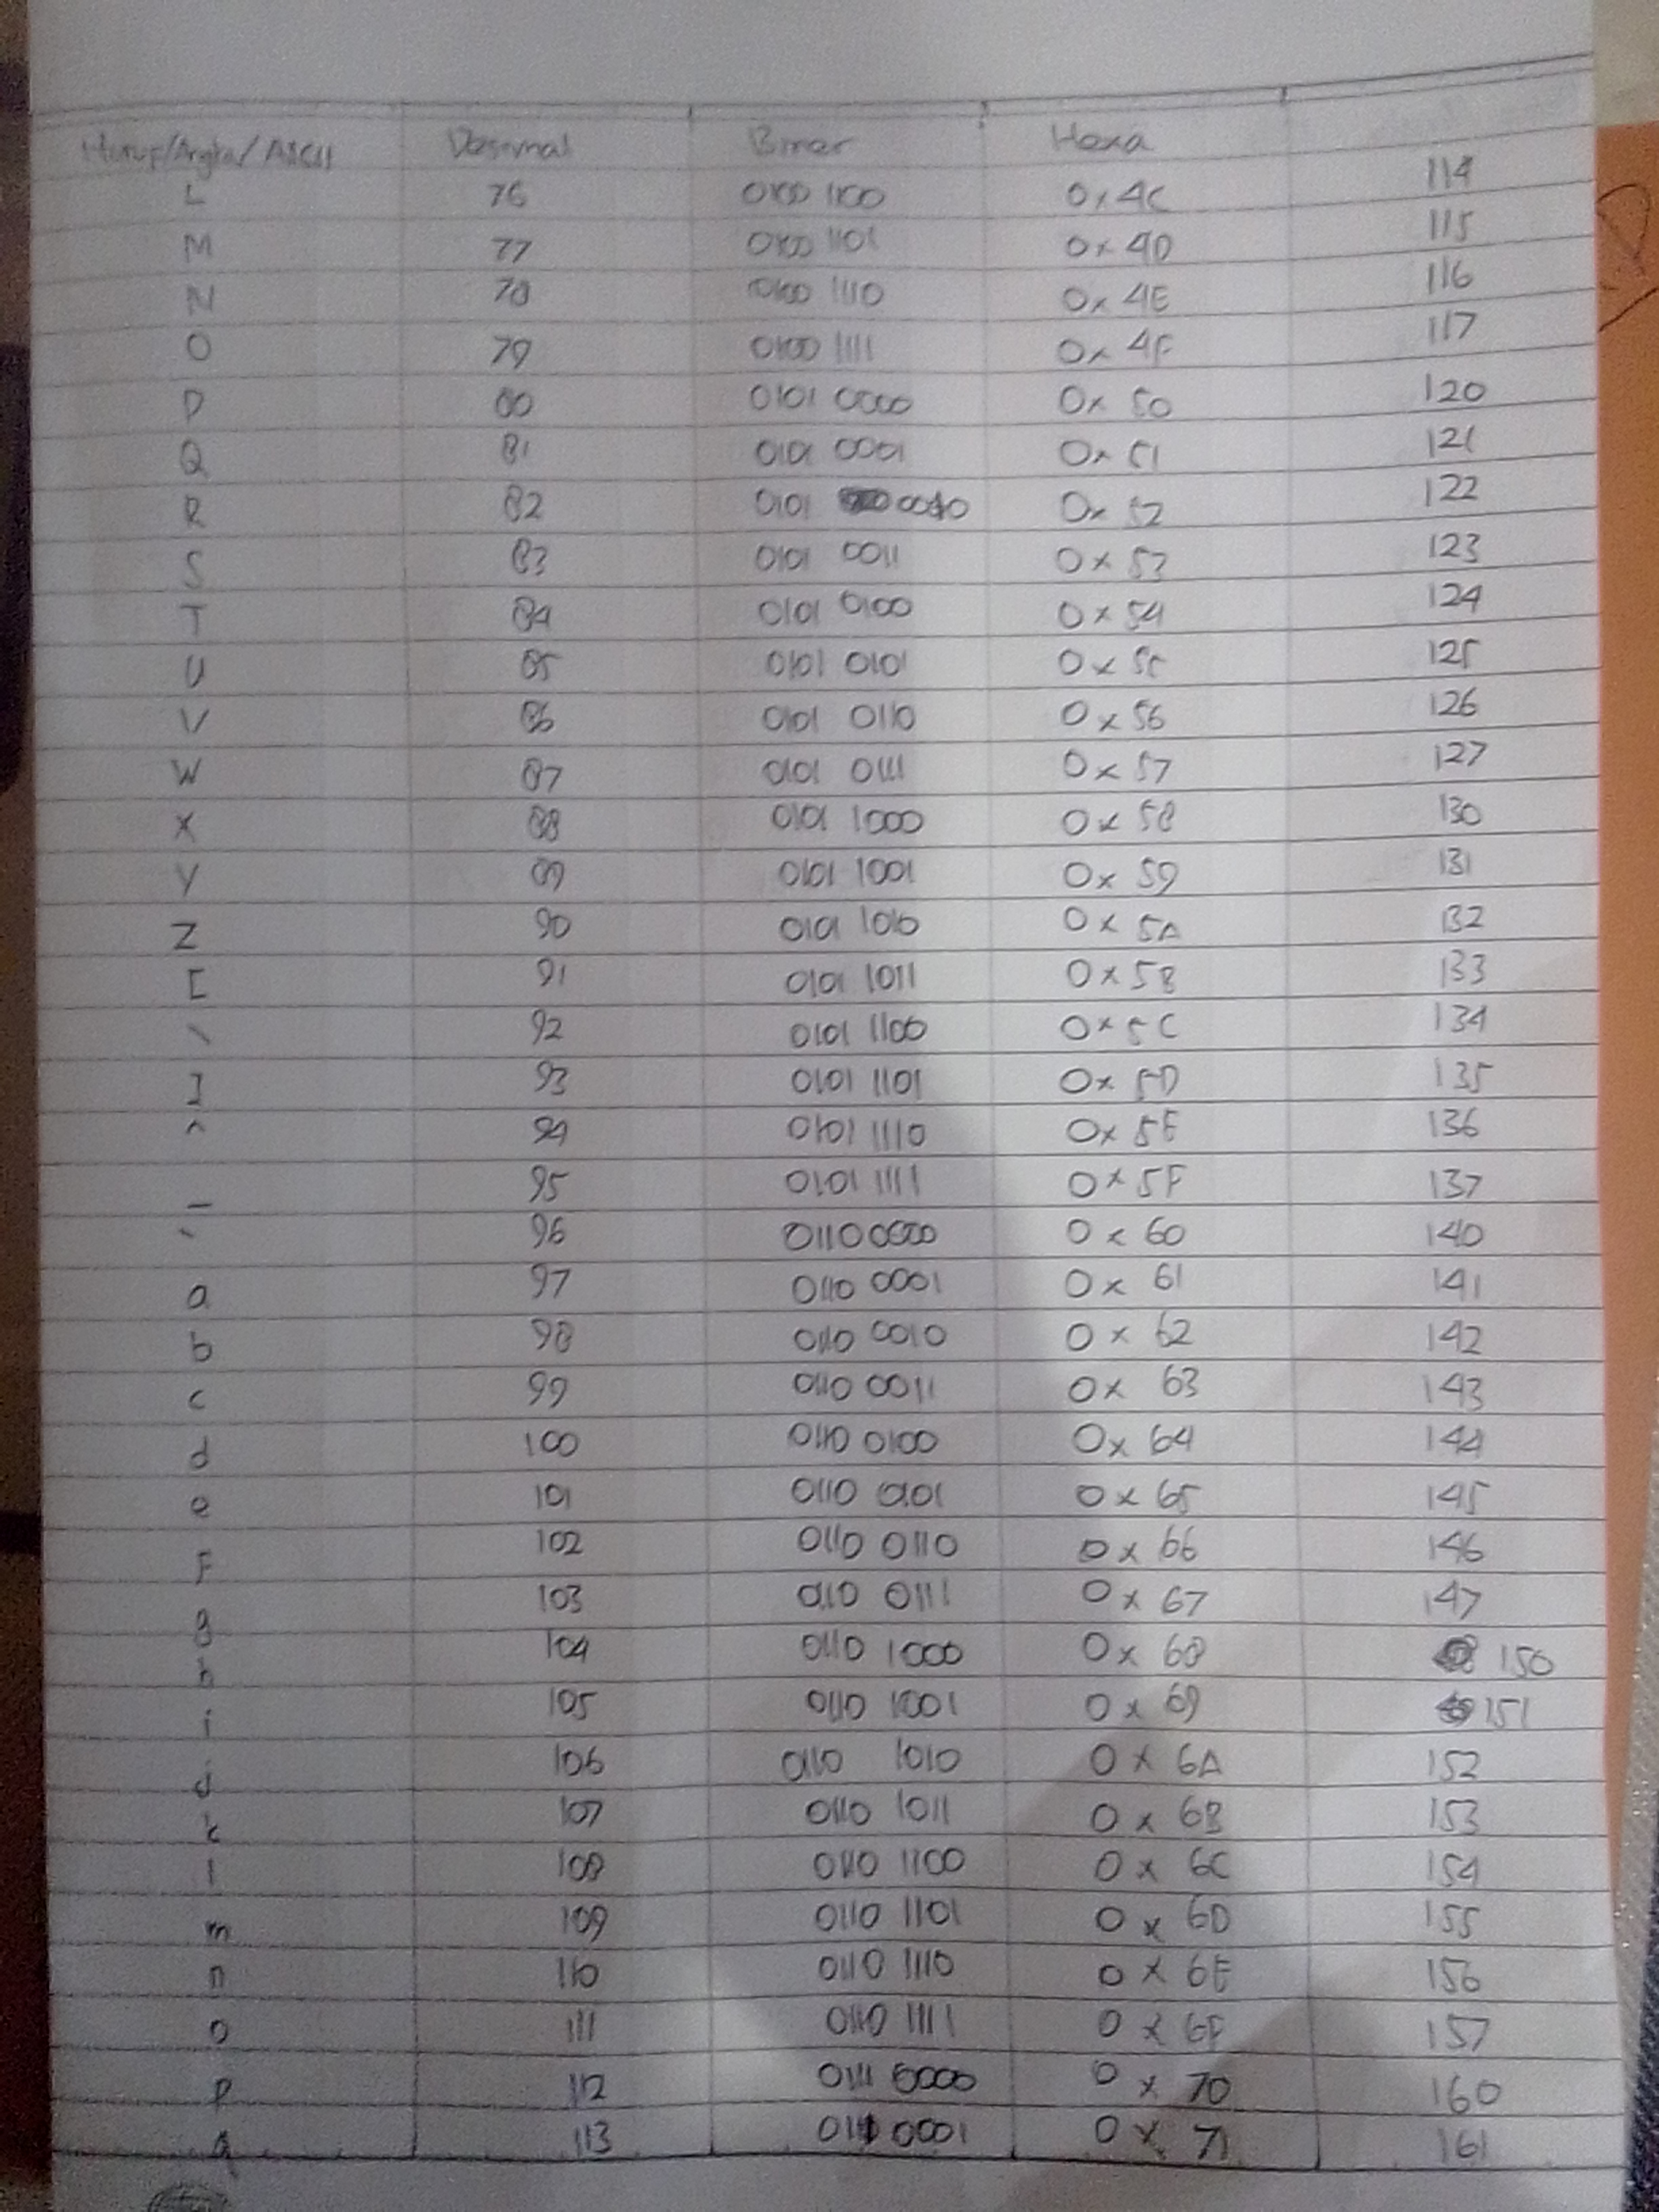 Huruf/Angka/ASCII Desimal Biner Hexa
L 76 0100 1100 0x4C 114
M 77 0100 1101 0x4D 115
N 78 0100 1110 0x4E 116
O 79 0100 1111 0x4F 117
P 80 0101 0000 0x50 120
Q 81 0101 0001 0x51 121
R 82 0101 0010 0x52 122
S 83 0101 0011 0x53 123
T 84 0101 0100 0x54 124
U 85 0101 0101 0x55 125
V 86 0101 0110 0x56 126
W 87 0101 0111 0x57 127
X 88 0101 1000 0x58 130
Y 89 0101 1001 0x59 131
Z 90 0101 1010 0x5A 132
[ 91 0101 1011 0x5B 133
\ 92 0101 1100 0x5C 134
] 93 0101 1101 0x5D 135
^ 94 0101 1110 0x5E 136
_ 95 0101 1111 0x5F 137
` 96 0110 0000 0x60 140
a 97 0110 0001 0x61 141
b 98 0110 0010 0x62 142
c 99 0110 0011 0x63 143
d 100 0110 0100 0x64 144
e 101 0110 0101 0x65 145
F 102 0110 0110 0x66 146
g 103 0110 0111 0x67 147
h 104 0110 1000 0x68 150
i 105 0110 1001 0x69 151
j 106 0110 1010 0x6A 152
k 107 0110 1011 0x6B 153
l 108 0110 1100 0x6C 154
m 109 0110 1101 0x6D 155
n 110 0110 1110 0x6E 156
o 111 0110 1111 0x6F 157
p 112 0111 0000 0x70 160
q 113 0111 0001 0x71 161